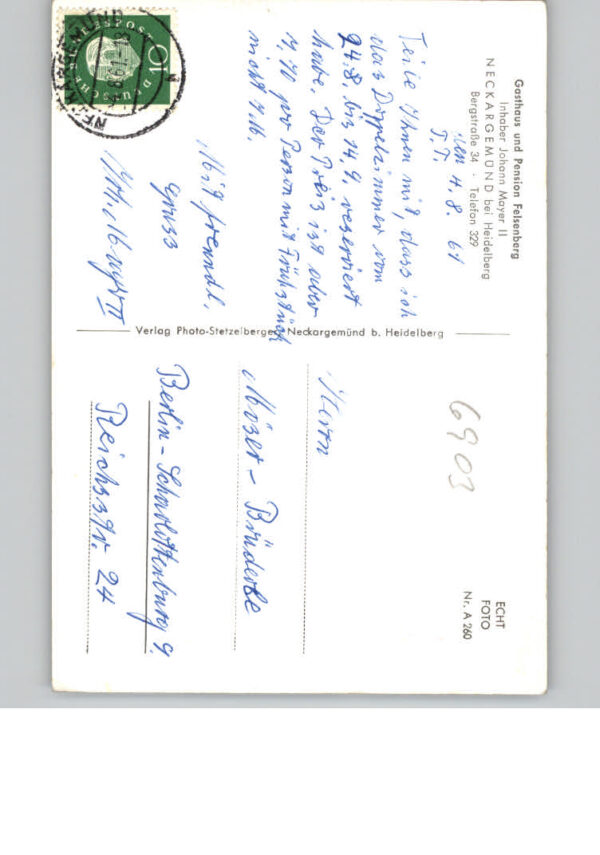 Gasthaus und Pension Felsenberg
Inhaber Johann Mayer II
NECKARGEMÜND bei Heidelberg
Bergstraße 34 · Telefon 329
den 4.8.61
P.P.
Teile Ihnen mit, dass ich
das Doppelzimmer vom
24.8. bis 14.9. reserviert
habe. Der Preis ist aber
pro Person mit Frühstück
nicht
Mit freundl.
Gruss
II
Verlag Photo-Stetzelberger, Neckargemünd b. Heidelberg
DEUTSCHE BUNDESPOST
10
NECKARGEMÜND
6903
ECHT
FOTO
Nr. A 260
Herrn
Berlin-Scharlottenburg 9.
Reichsstr. 24